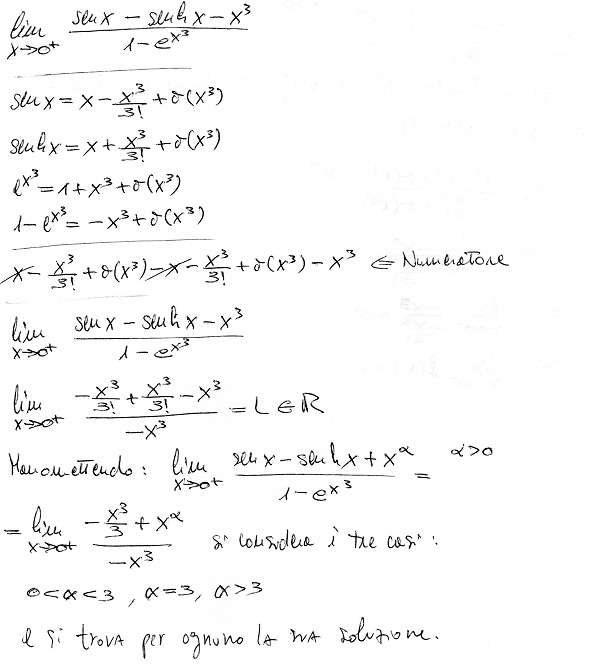 lim x→0⁺ (sen x − senh x − x³)/(1 − e^x³)
sen x = x − x³/3! + o(x³)
senh x = x + x³/3! + o(x³)
e^x³ = 1 + x³ + o(x³)
1 − e^x³ = −x³ + o(x³)
x − x³/3! + o(x³) − x − x³/3! + o(x³) − x³ ⇐ Numeratore
lim x→0⁺ (sen x − senh x − x³)/(1 − e^x³)
lim x→0⁺ (−x³/3! + x³/3! − x³)/(−x³) = L ∈ ℝ
Manomettendo: lim x→0⁺ (sen x − senh x + x^α)/(1 − e^x³) = α>0
= lim x→0⁺ (−x³/3 + x^α)/(−x³) si considera i tre casi:
0<α<3, α=3, α>3
e si trova per ognuno la sua soluzione.